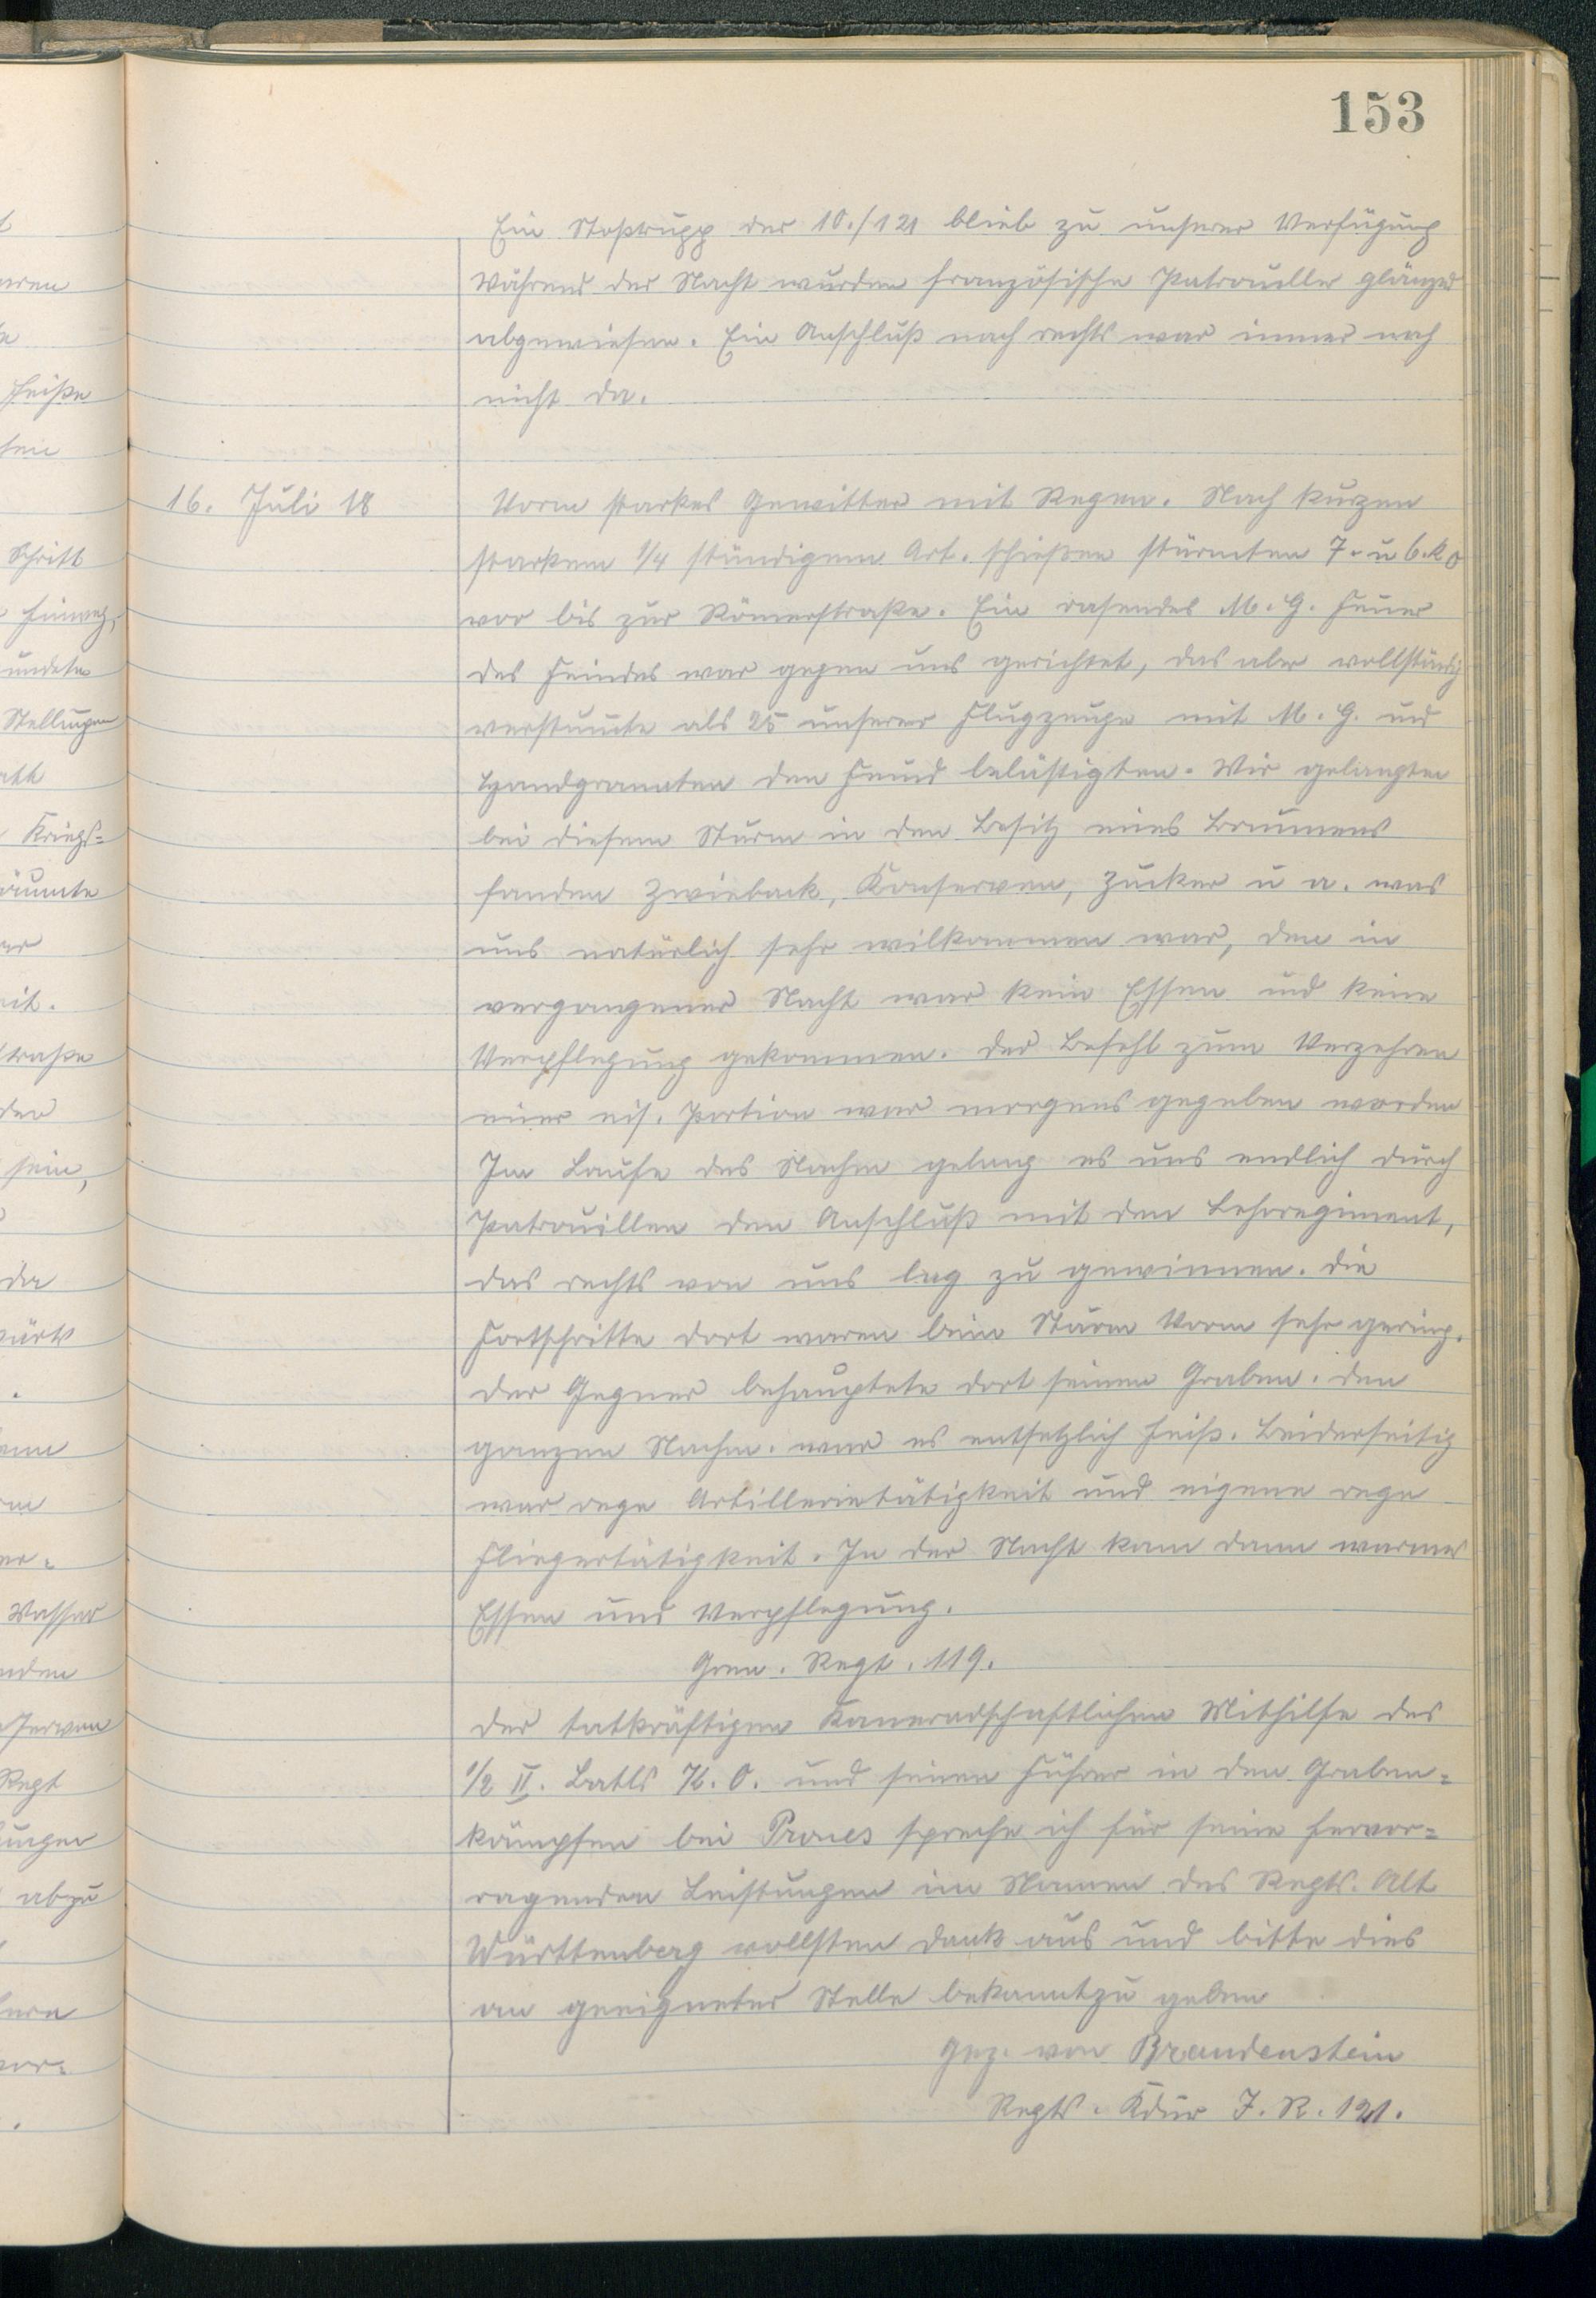 153
Ein Stoßtrupp der 10./121 blieb zu unserer Verfügung
Während der Nacht wurden französische Patrouillen glänzend
abgewiesen. Ein Anschluß nach rechts war immer noch
nicht da.
16. Juli 18 Vorm starkes Gewitter mit Regen. Nach kurzem
starkem 1/4 stündigem Art. schießen stürmten 7. u 6. Ko
vor bis zur Römerstraße. Ein rasendes M. G. Feuer
des Feindes war gegen uns gerichtet, das aber vollständig
verstummte als 25 unserer Flugzeuge mit M. G. und
Handgranaten den Feind belästigten. Wir gelangten
bei diesem Sturm in den Besitz eines Brunnens
fanden Zwieback, Konserven, Zucker u a. was
uns natürlich sehr wilkommen war, den in
vergangener Nacht war kein Essen und keine
Verpflegung gekommen. Der Befehl zum Verzehren
einer eis. Portion war morgens gegeben worden
Im Laufe des Nachm gelang es uns endlich durch
Patrouillen den Anschluß mit dem Lehrregiment,
das rechts von uns lag zu gewinnen. Die
Fortschritte dort waren beim Sturm Vorm sehr gering.
Der Gegner behauptete dort seinen Graben. Den
ganzen Nachm. war es entsetzlich heiß. Beiderseitig
war rege Artillerietätigkeit und eigene rege
Fliegertätigkeit. In der Nacht kam dann warmes
Essen und Verpflegung.
Gren. Regt. 119.
Der tatkräftigen Kameradschaftlichen Mithilfe des
1/2 II. Batls K. O. und seinen Führer in den Graben=
kämpfen bei Prones spreche ich für seine hervor=
ragenden Leistungen im Namen des Regts. Alt
Württemberg vollsten Dank aus und bitte dies
an geeigneter Stelle bekanntzu geben
gez. von Brandenstein
Regts. Kdur I. R. 121.